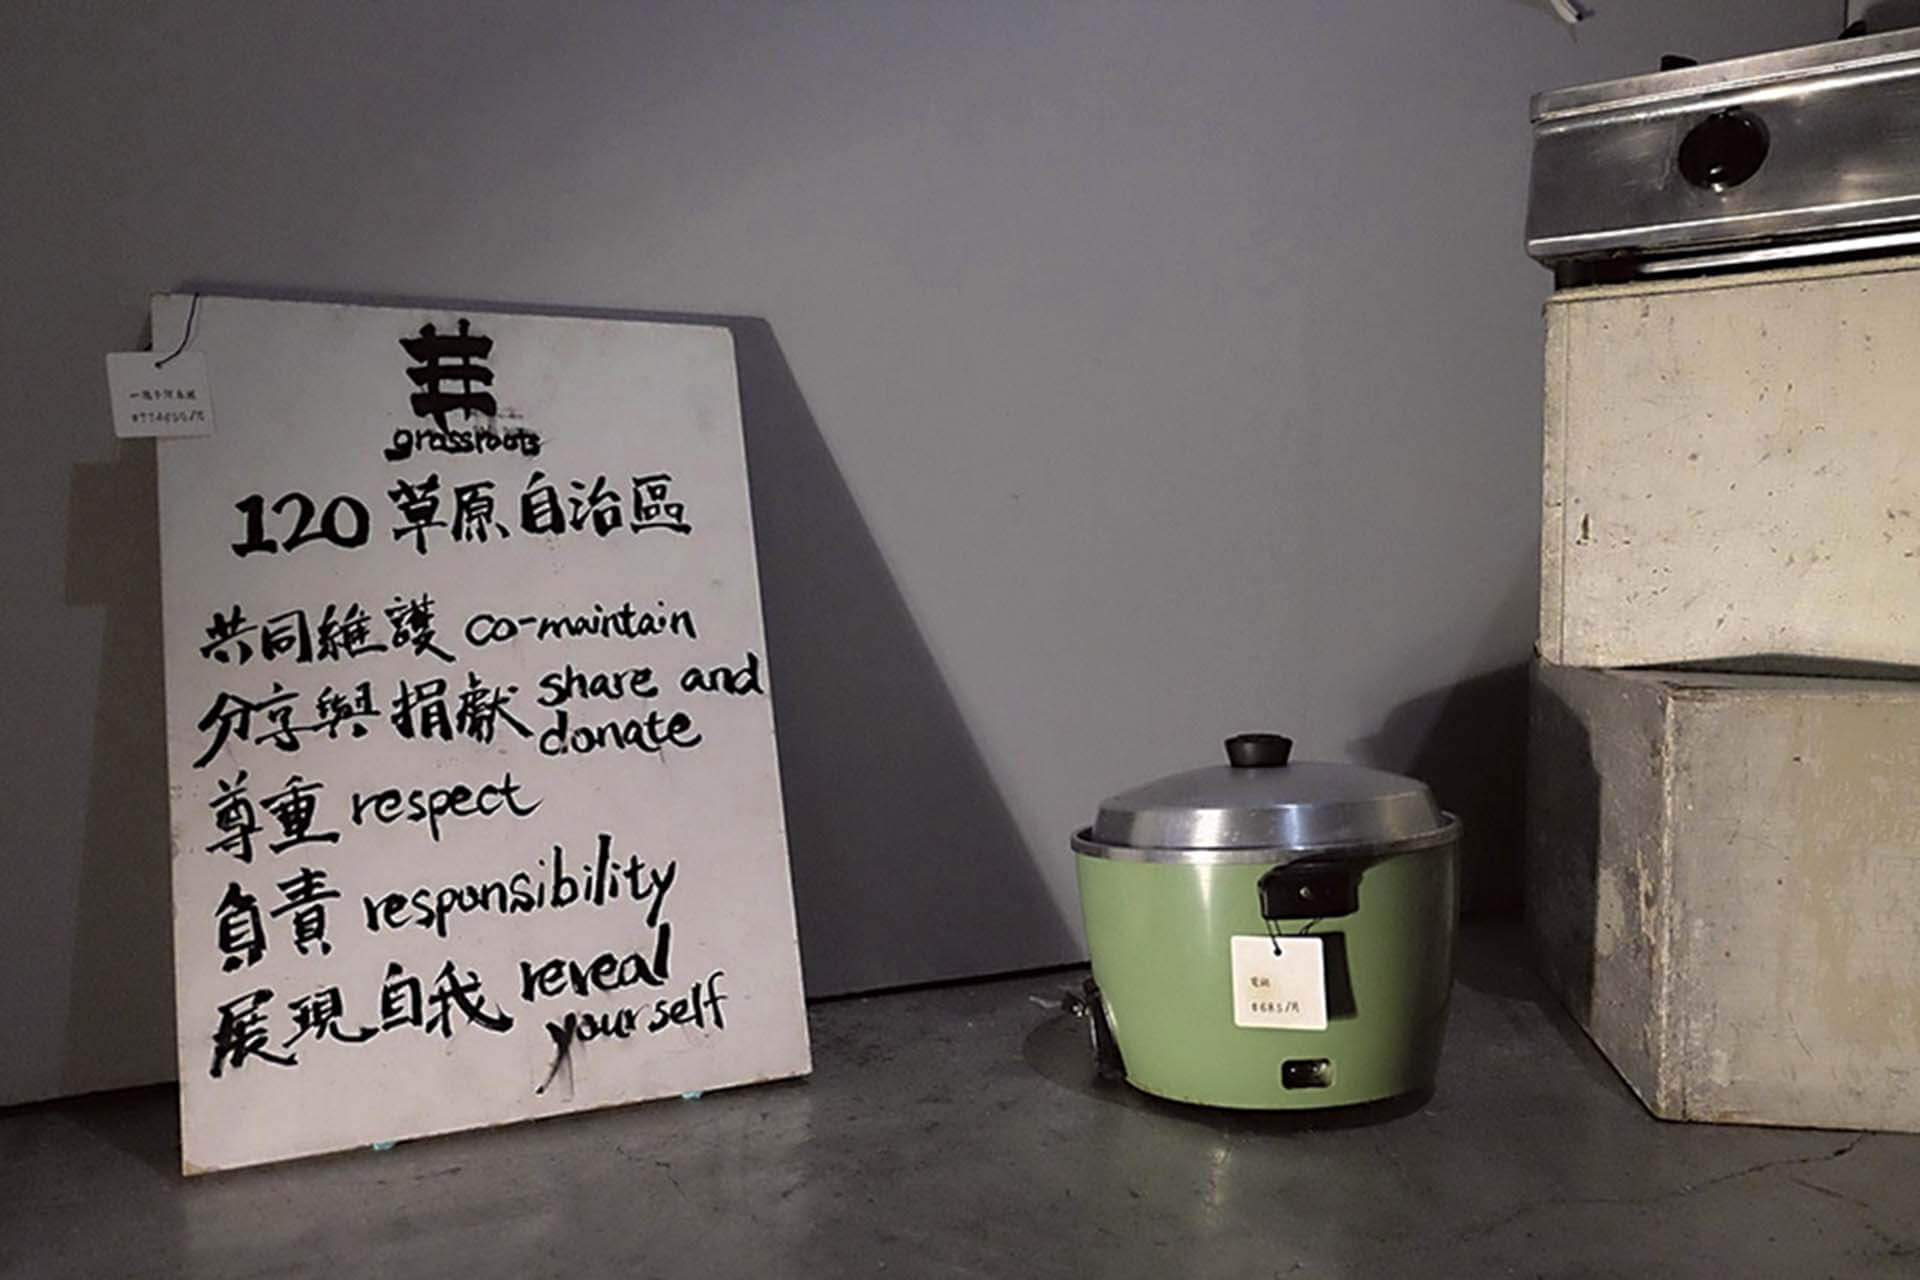 grassroots
120 草原自治區
共同維護 co-maintain
分享與捐獻 share and
donate
尊重 respect
負責 responsibility
展現自我 reveal
yourself
電鍋
$685/月